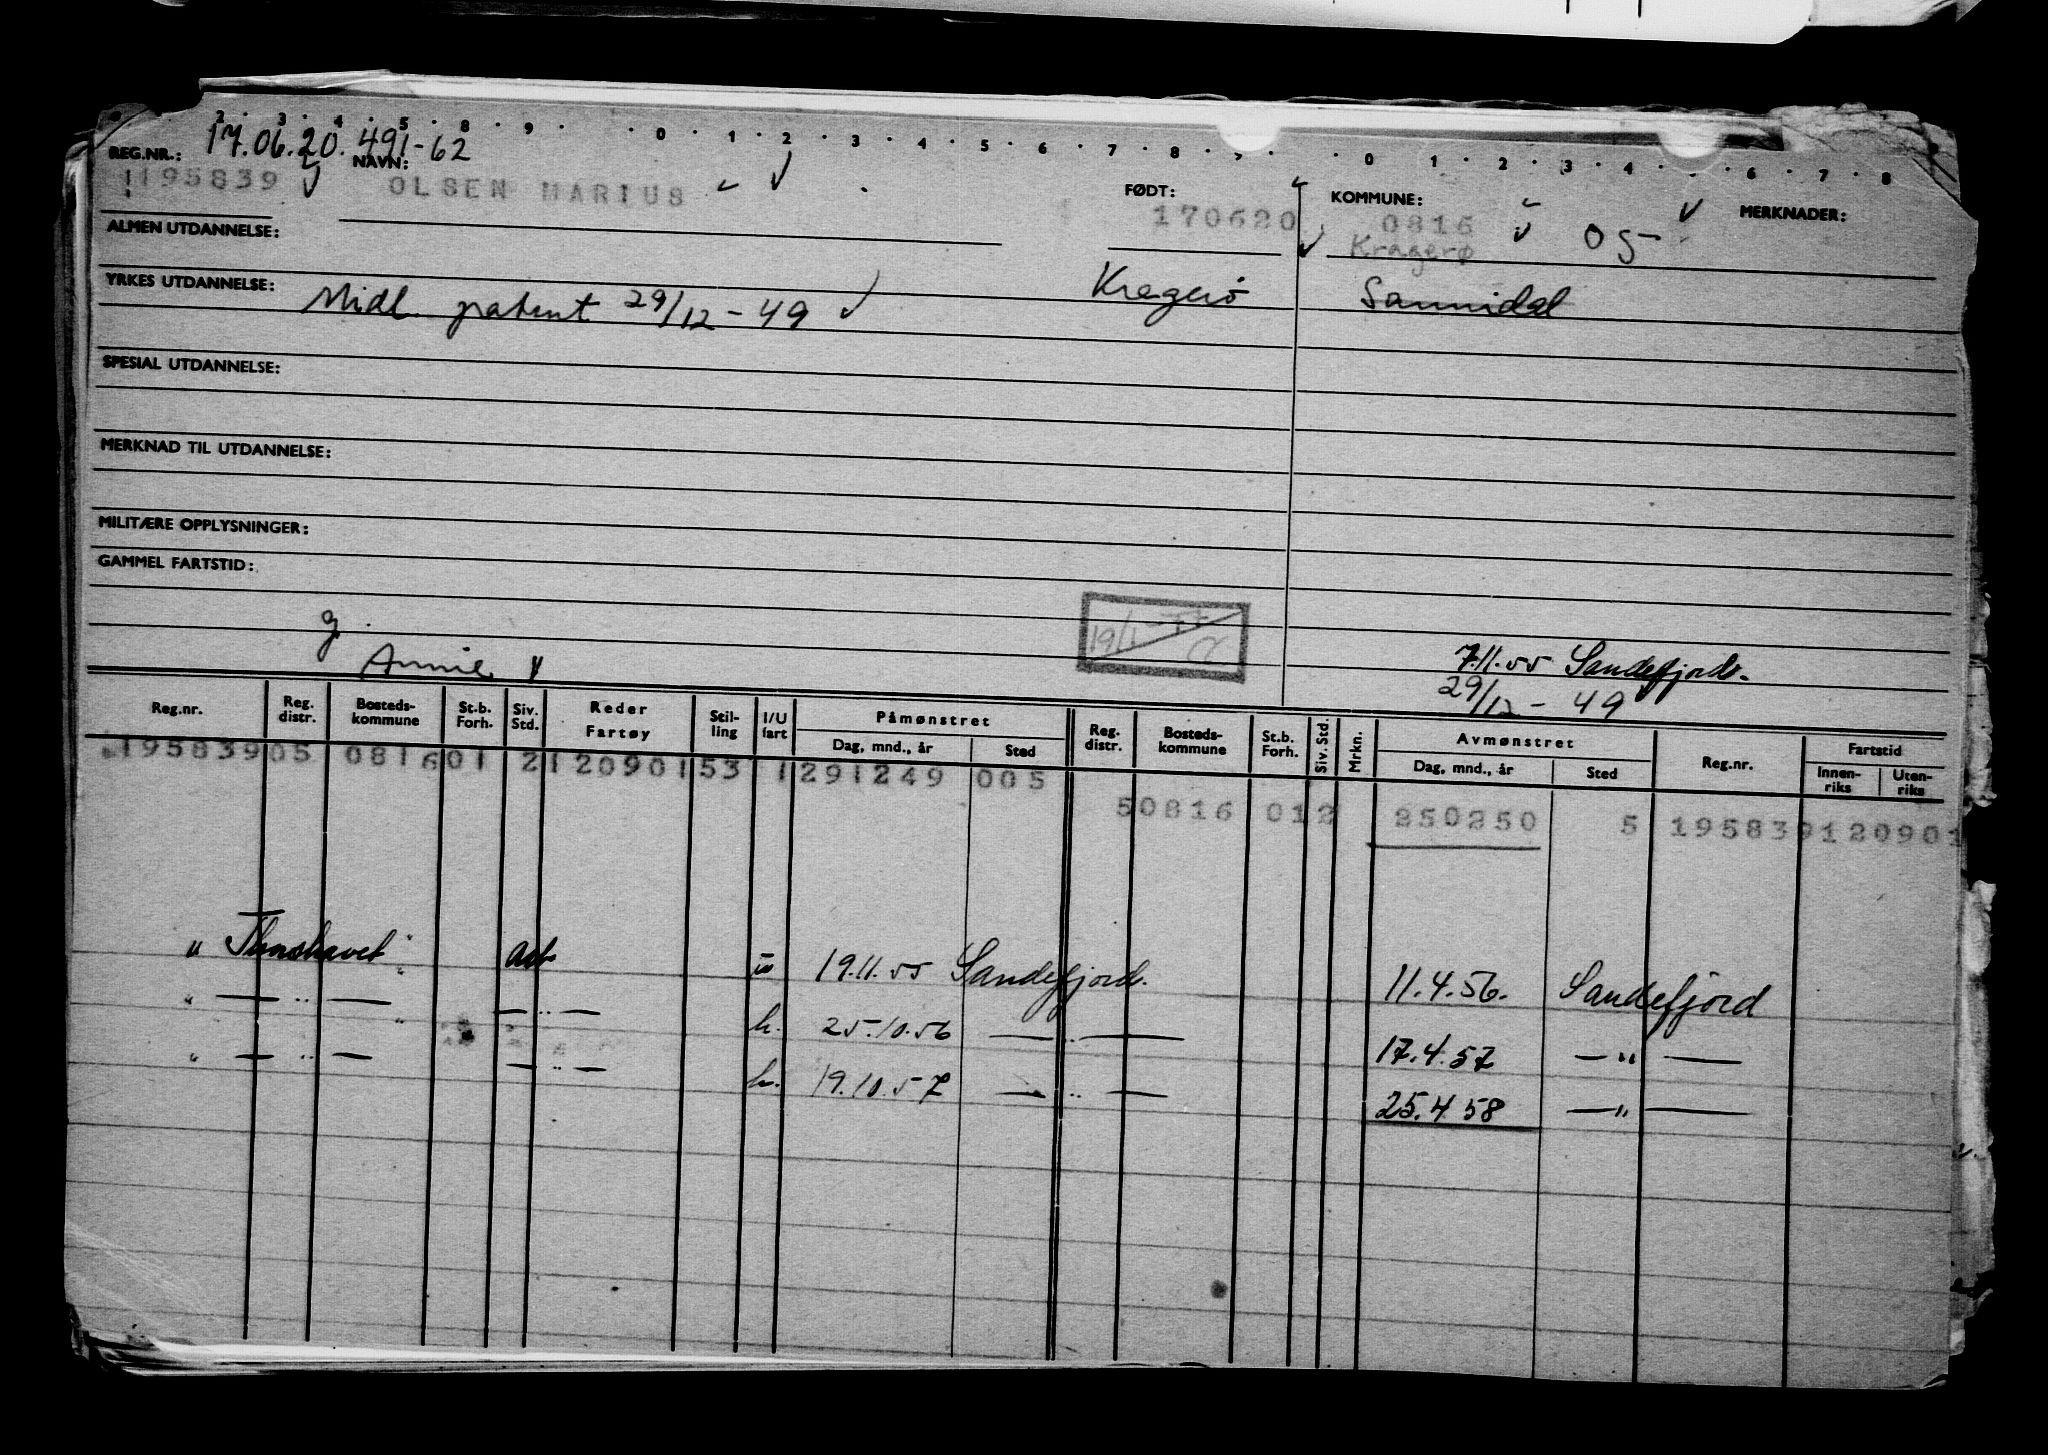 2 · 3 · 4 · 5 · 8 · 9 · 0 · 1 · 2 · 3 · 4 · 5 · 6 · 7 · 8 · 0 · 1 · 2 · 3 · 4 · 6 · 7 · 8
17.06.20.491-62
REG.NR.: NAVN: FØDT: KOMMUNE: MERKNADER:
195839 OLSEN MARIUS 170620 0816 05
Kragerø
ALMEN UTDANNELSE:
YRKES UTDANNELSE: Midl. patent 29/12-49 Kragerö Sannidal
SPESIAL UTDANNELSE:
MERKNAD TIL UTDANNELSE:
MILITÆRE OPPLYSNINGER:
GAMMEL FARTSTID:
g.
Annie
19/1-77
7.11.55 Sandefjord.
29/12-49
Reg.nr. Reg. distr. Bosteds-kommune St.b. Forh. Siv. Std. Reder Fartøy Stil-ling I/U fart Påmønstret Dag, mnd., år Sted Reg. distr. Bosteds-kommune St.b. Forh. Siv. Std. Mrkn. Avmønstret Dag, mnd., år Sted Reg.nr. Fartstid Innen-riks Uten-riks
195839 05 0816 01 2 1209015 3 1 291249 005
5 0816 01 2 250250 5 195839 120901
" Thorshavet " u 19.11.55 Sandefjord. 11.4.56. Sandefjord
" — " — — " — h. 25.10.56 — " — 17.4.57 — " —
" — " — — " — h. 19.10.57 — " — 25.4 58 — " —